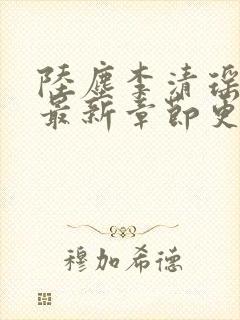 陆尘李清瑶
最新章节更
穆加希德